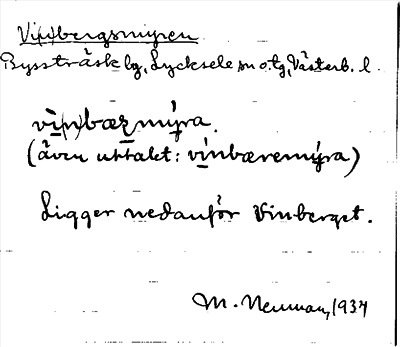 Vi(n)bergsmyren
Byssträsk bg, Lycksele sn o. tg, Västerb. l.
vi(n)bærmýra.
(även uttalet: vinbæremýra)
Ligger nedanför Vinberget.
M. Neuman, 1934